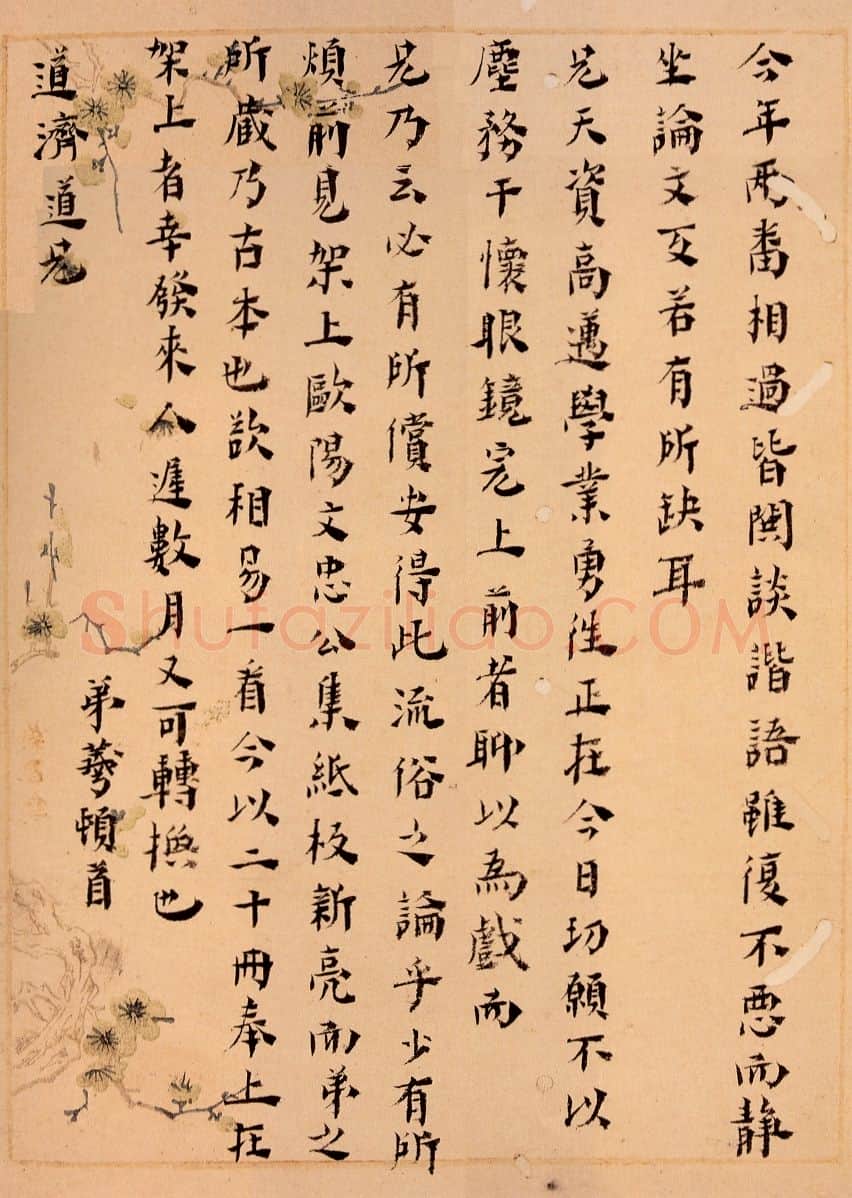 今年兩番相過皆闊談諧語雖復不惡而靜
坐論文互若有所缺耳
兄天資高邁學業勇往正在今日切願不以
塵務干懷眼鏡完上前者聊以為戲而
兄乃云必有所償安得此流俗之論乎少有所
煩前見架上歐陽文忠公集紙板新亮而弟之
所藏乃古本也欲相易一看今以二十冊奉上在
架上者幸發來人遲數月又可轉換也
弟頓首
道濟道兄
Shufaziliao.COM